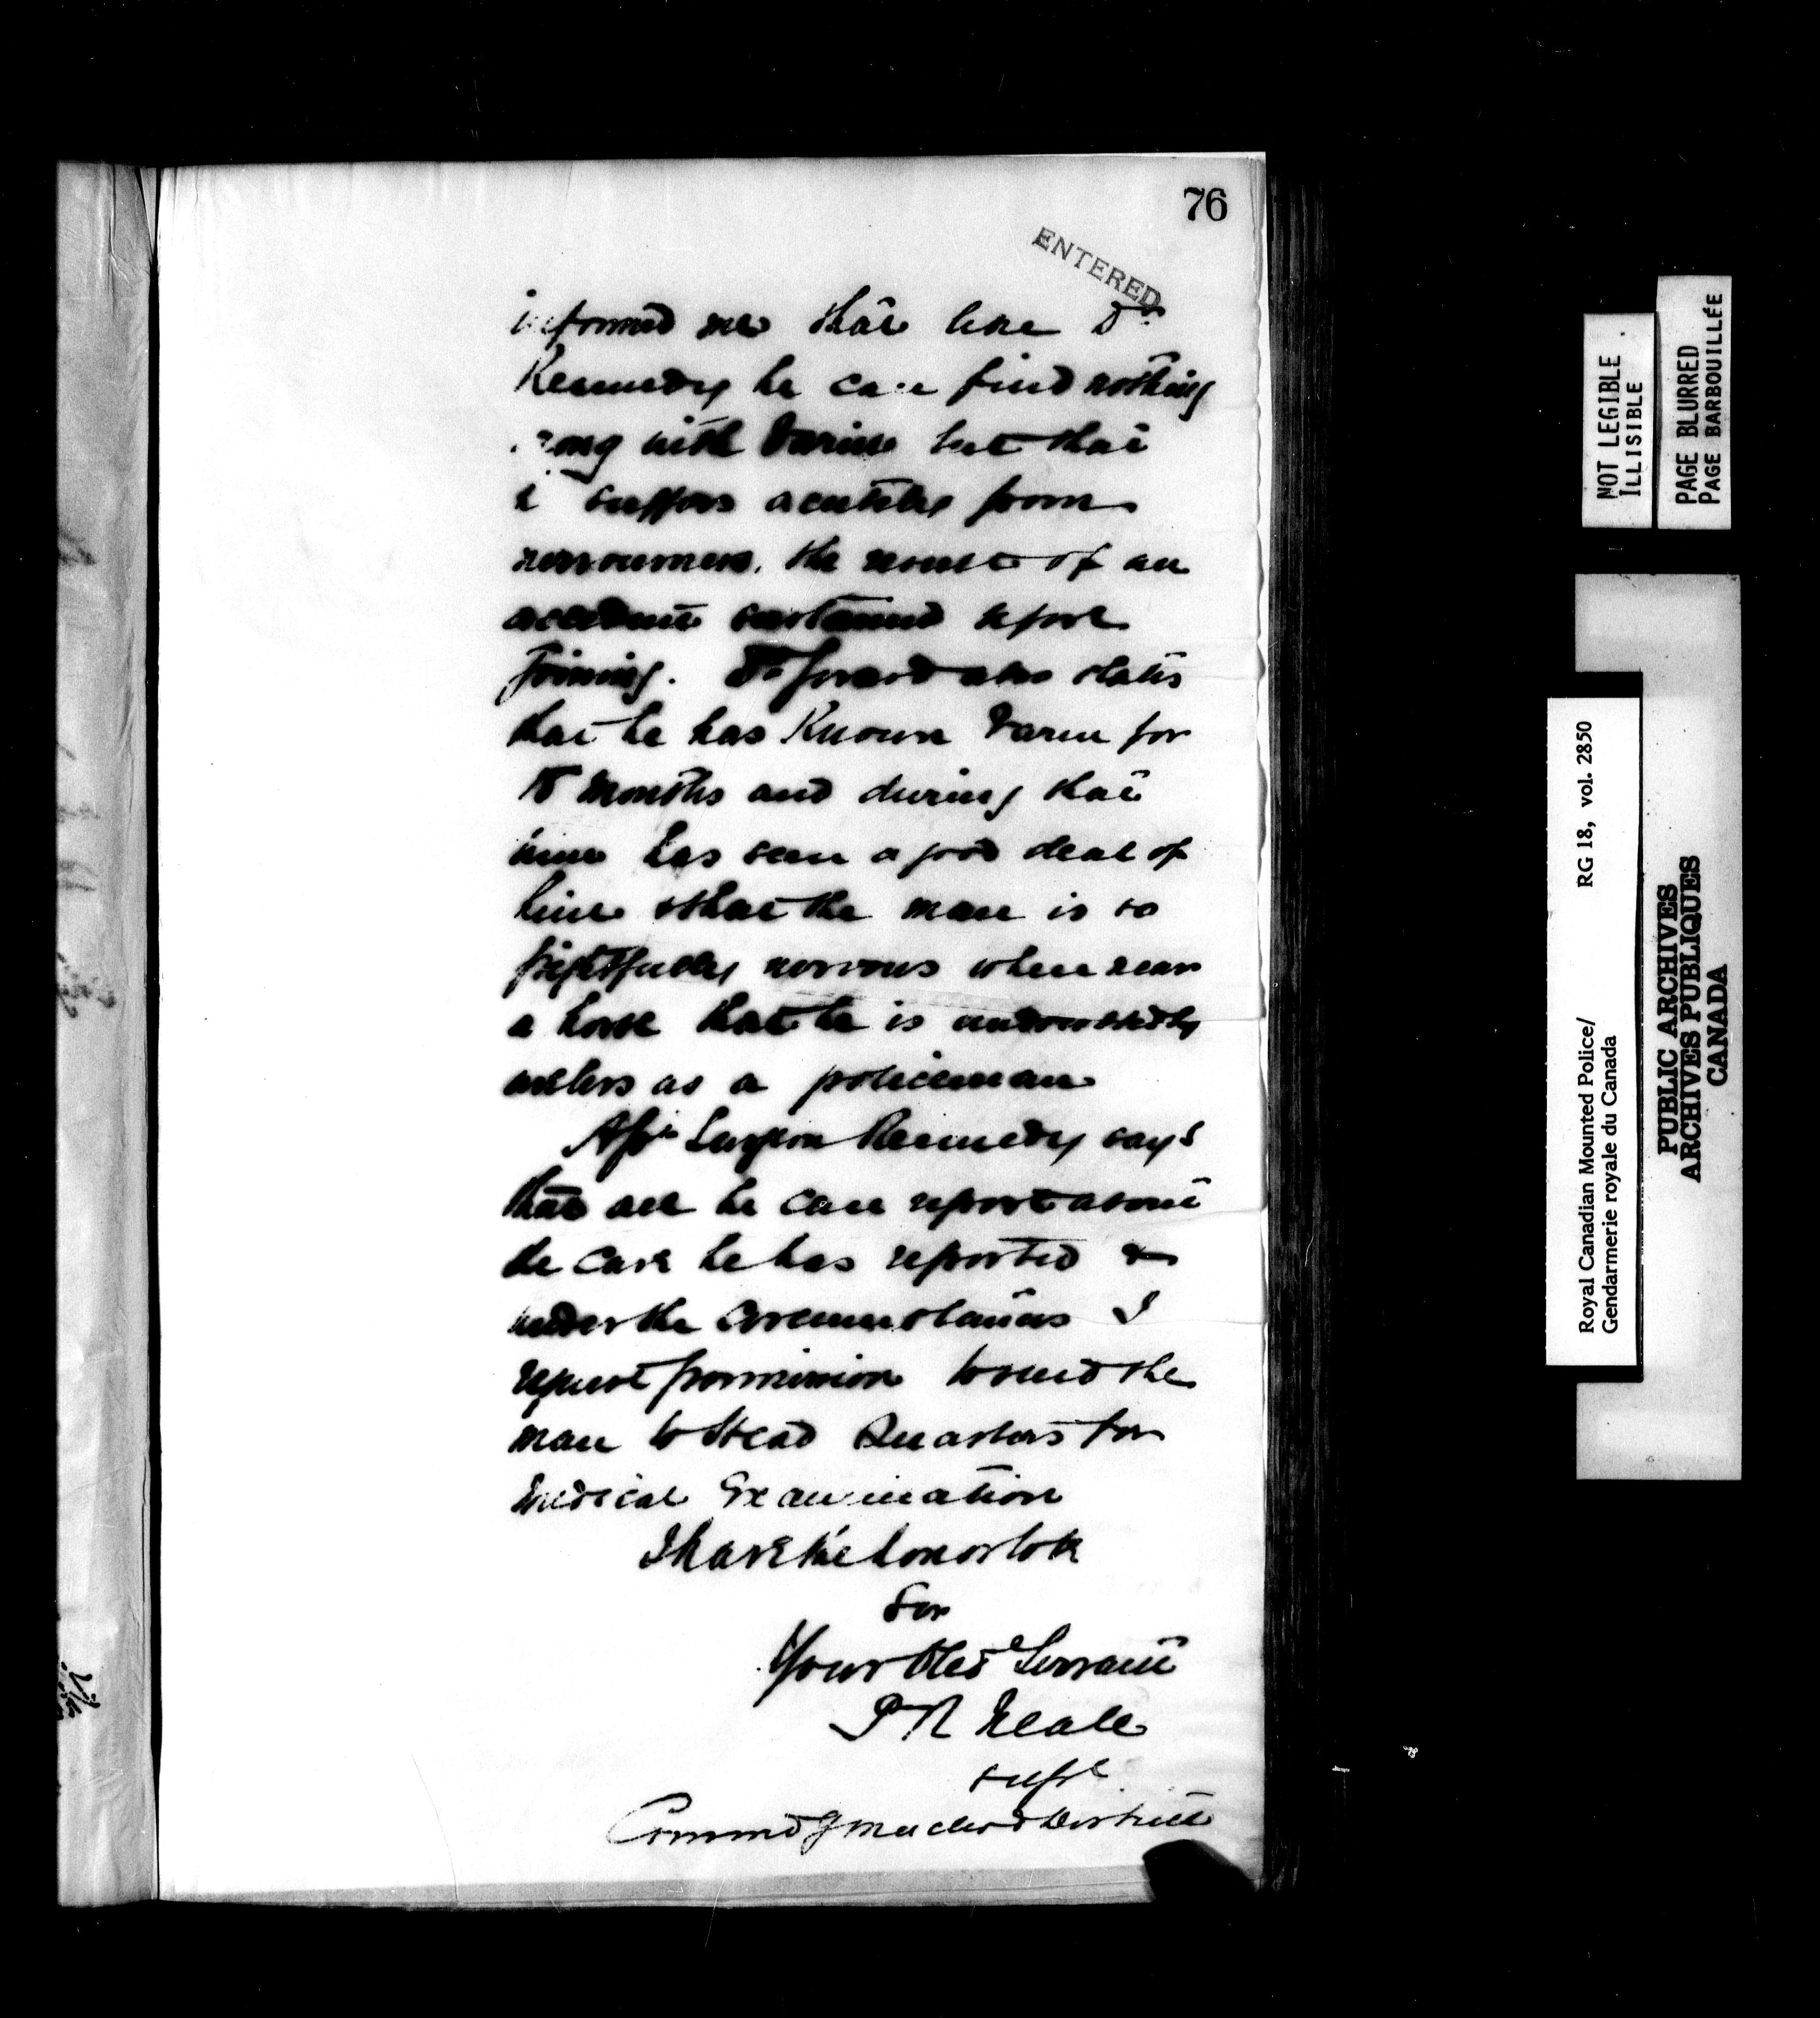 76
ENTERED
informed me that like Dr
Kennedy he can find nothing
wrong with but that
he suffers acutely from
nervousness, the result of an
accident sustained before
joining. Dr also states
that he has Known for
18 months and during that
time has seen a good deal of
him & that the man is so
frightfully nervous when near
a horse that he is undoubtedly
useless as a policeman
Asst Surgeon Kennedy says
that all he can report about
the case he has reported &
under the circumstances I
request permission to send the
man to Head Quarters for
Medical Examination
I have the honor to be
Sir
Your Obed Servant
P R Neale
Supt
Commdg Macleod District
NOT LEGIBLE
ILLISIBLE
PAGE BLURRED
PAGE BARBOUILLÉE
Royal Canadian Mounted Police/ RG 18, vol. 2850
Gendarmerie royale du Canada
PUBLIC ARCHIVES
ARCHIVES PUBLIQUES
CANADA